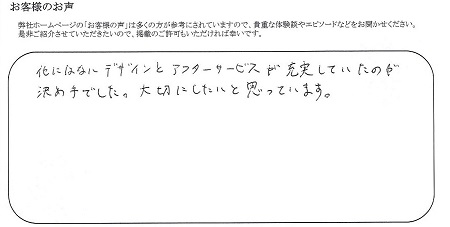 お客様のお声
弊社ホームページの「お客様の声」は多くの方が参考にされていますので、貴重な体験談やエピソードなどをお聞かせください。
是非ご紹介させていただきたいので、掲載のご許可もいただければ幸いです。
他にはないデザインとアフターサービスが充実していたのが
決め手でした。大切にしたいと思っています。